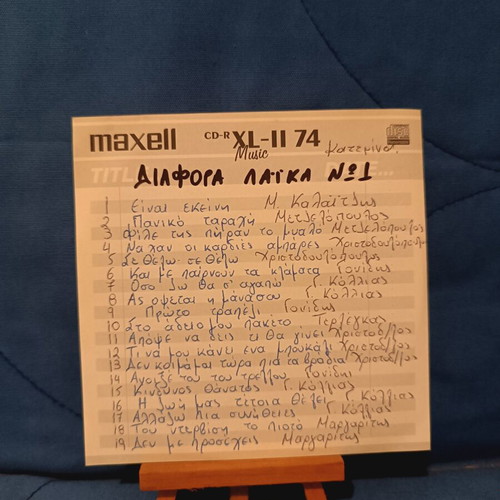 maxell CD-R XL-II 74
Music
Κατερίνα
TITL
ΔΙΑΦΟΡΑ ΛΑΪΚΑ Νº1
1 Είναι εκείνη Μ. Καλαϊτζής
2 Πανικό ταραχή Μετζελόπουλος
3 Φίλε της πήραν το μυαλό Μετζελόπουλος
4 Να χαν οι καρδιές αμπάρες Χριστοδουλόπουλος
5 Σε θέλω σε θέλω Χριστοδουλόπουλος
6 Και με παίρνουν τα κλάματα Γονίδης
7 Όσο ζω θα σ' αγαπώ Γ. Κόλλιας
8 Ας όψεται η μάνα σου Γ. Κόλλιας
9 Πρώτο τραπέζι Γονίδης
10 Στο άδειο μου πακέτο Τερλέγκας
11 Απόψε να δεις τι θα γίνει Χριστοδ/λος
12 Τι να μου κάνει ένα μπουκάλι Χριστοδ/λος
13 Δεν κοιμάμαι τώρα πια τα βράδια Χριστοδ/λος
14 Άνοιξε του του τρελλού Γονίδης
15 Κίνδυνος θάνατος Γ. Κόλλιας
16 Η ζωή μας τέτοια θέλει Γ. Κόλλιας
17 Αλλάζω πια συνήθειες Γ. Κόλλιας
18 Του ντερβίση το πιοτό Μαργαρίτης
19 Δεν με προσέχεις Μαργαρίτης